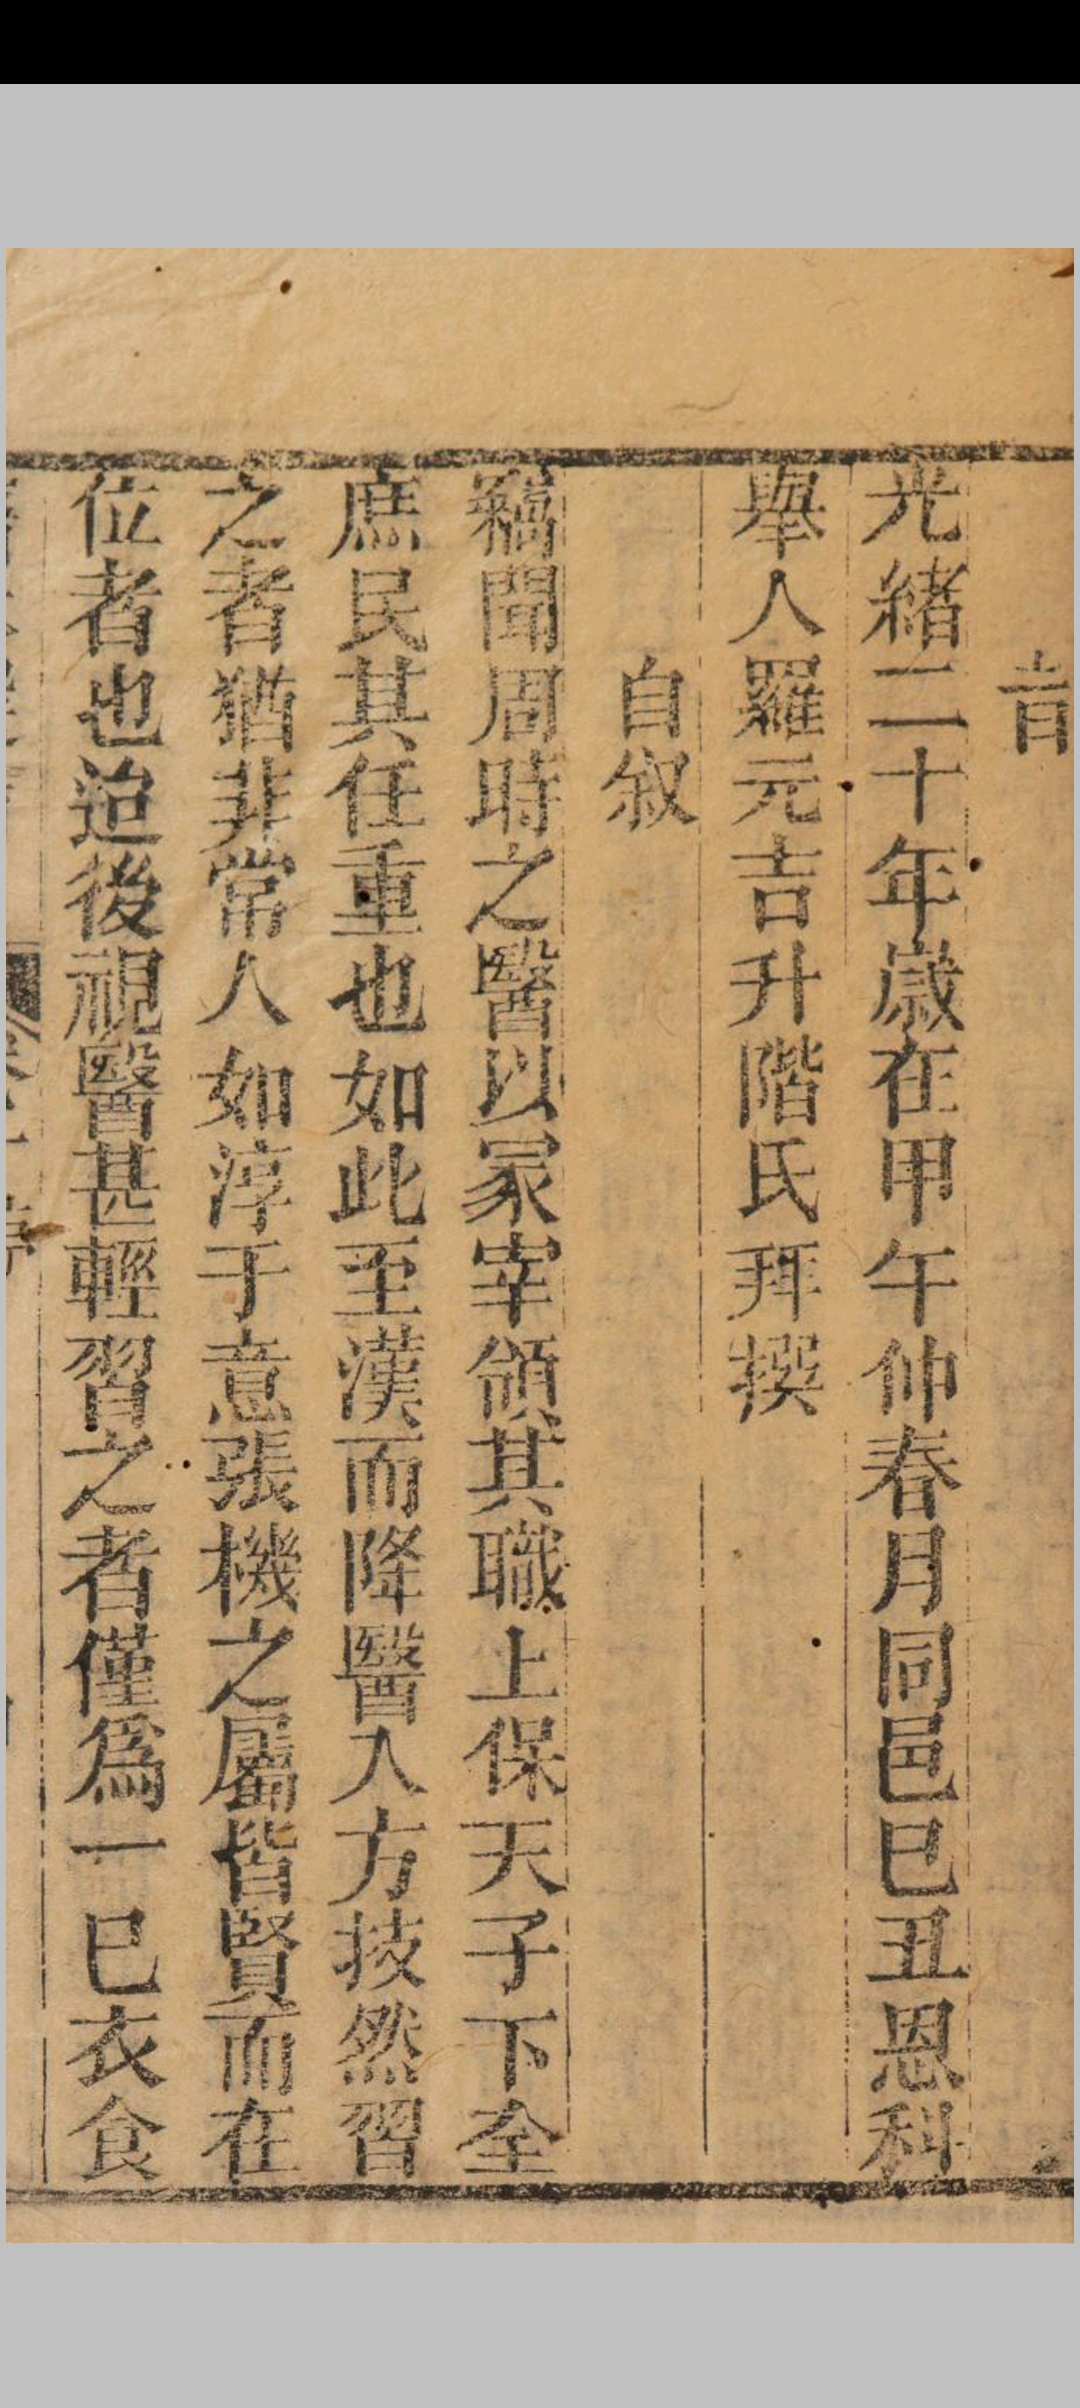 旹
光緒二十年歲在甲午仲春月同邑巳丑恩科
舉人羅元吉升階氏拜撰
自叙
竊聞周時之醫以冢宰領其職上保天子下全
庶民其任重也如此至漢而降醫入方技然習
之者猶非常人如淳于意張機之屬皆賢而在
位者也迨後視醫甚輕習之者僅爲一巳衣食